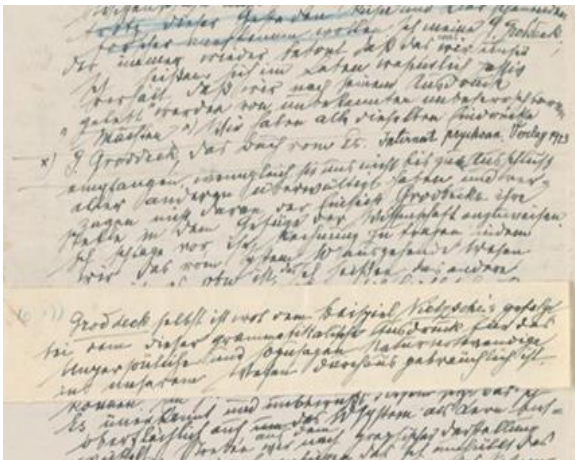 trotz dieser
forscher anerkennen wollen Ich meine G. Groddeck
der immer wieder betont daß das was wir unser
Ich heißen, sich im Leben wesentlich passiv
verhält, daß wir nach seinem Ausdruck
„gelebt“ werden von unbekannten unbeherrschbaren
Mächten x) Wir haben alle dieselben Eindrücke
x) G. Groddeck, das Buch vom Es. Internat. psychoan. Verlag 1923
empfangen, wenngleich sie uns nicht bis zum Ausschluß
aller anderen überwältigt haben und ver-
zagen nicht daran der Einsicht Groddecks ihre
Stelle in dem Gefüge der Wissenschaft anzuweisen.
Ich schlage vor ihr Rechnung zu tragen indem
wir das vom System W ausgehende Wesen
vbw ist, das Ich heißen, das andere
Groddeck selbst ist wol dem Beispiel Nietzsches gefolgt
bei dem dieser grammatikalische Ausdruck für das
Unpersönliche und sozusagen Naturnotwendige
in unserem Wesen durchaus gebräuchlich ist.
Es unerkannt und unbewußt
oberflächlich auf aus dem das W System als Kern
Streben wir nach graphischer Darstellung